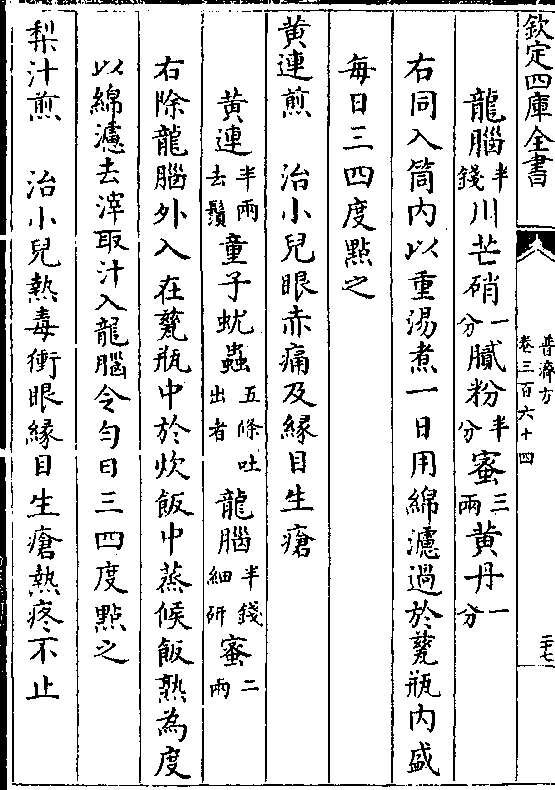 欽定四庫全書
普濟方
卷三百六十四
二十七
龍腦半錢川芒硝一分膩粉半分蜜三兩黄丹一分
右同入筒内以重湯煮一日用綿濾過於甆瓶内盛
每日三四度點之
黄連煎　治小兒眼赤痛及緣目生瘡
黄連半兩去鬚童子蚘蟲五條吐出者龍腦半錢細研蜜二兩
右除龍腦外入在甆瓶中於炊飯中蒸候飯熟為度
以綿濾去滓取汁入龍腦令勻日三四度點之
梨汁煎　治小兒熱毒衝眼緣目生瘡熱疼不止